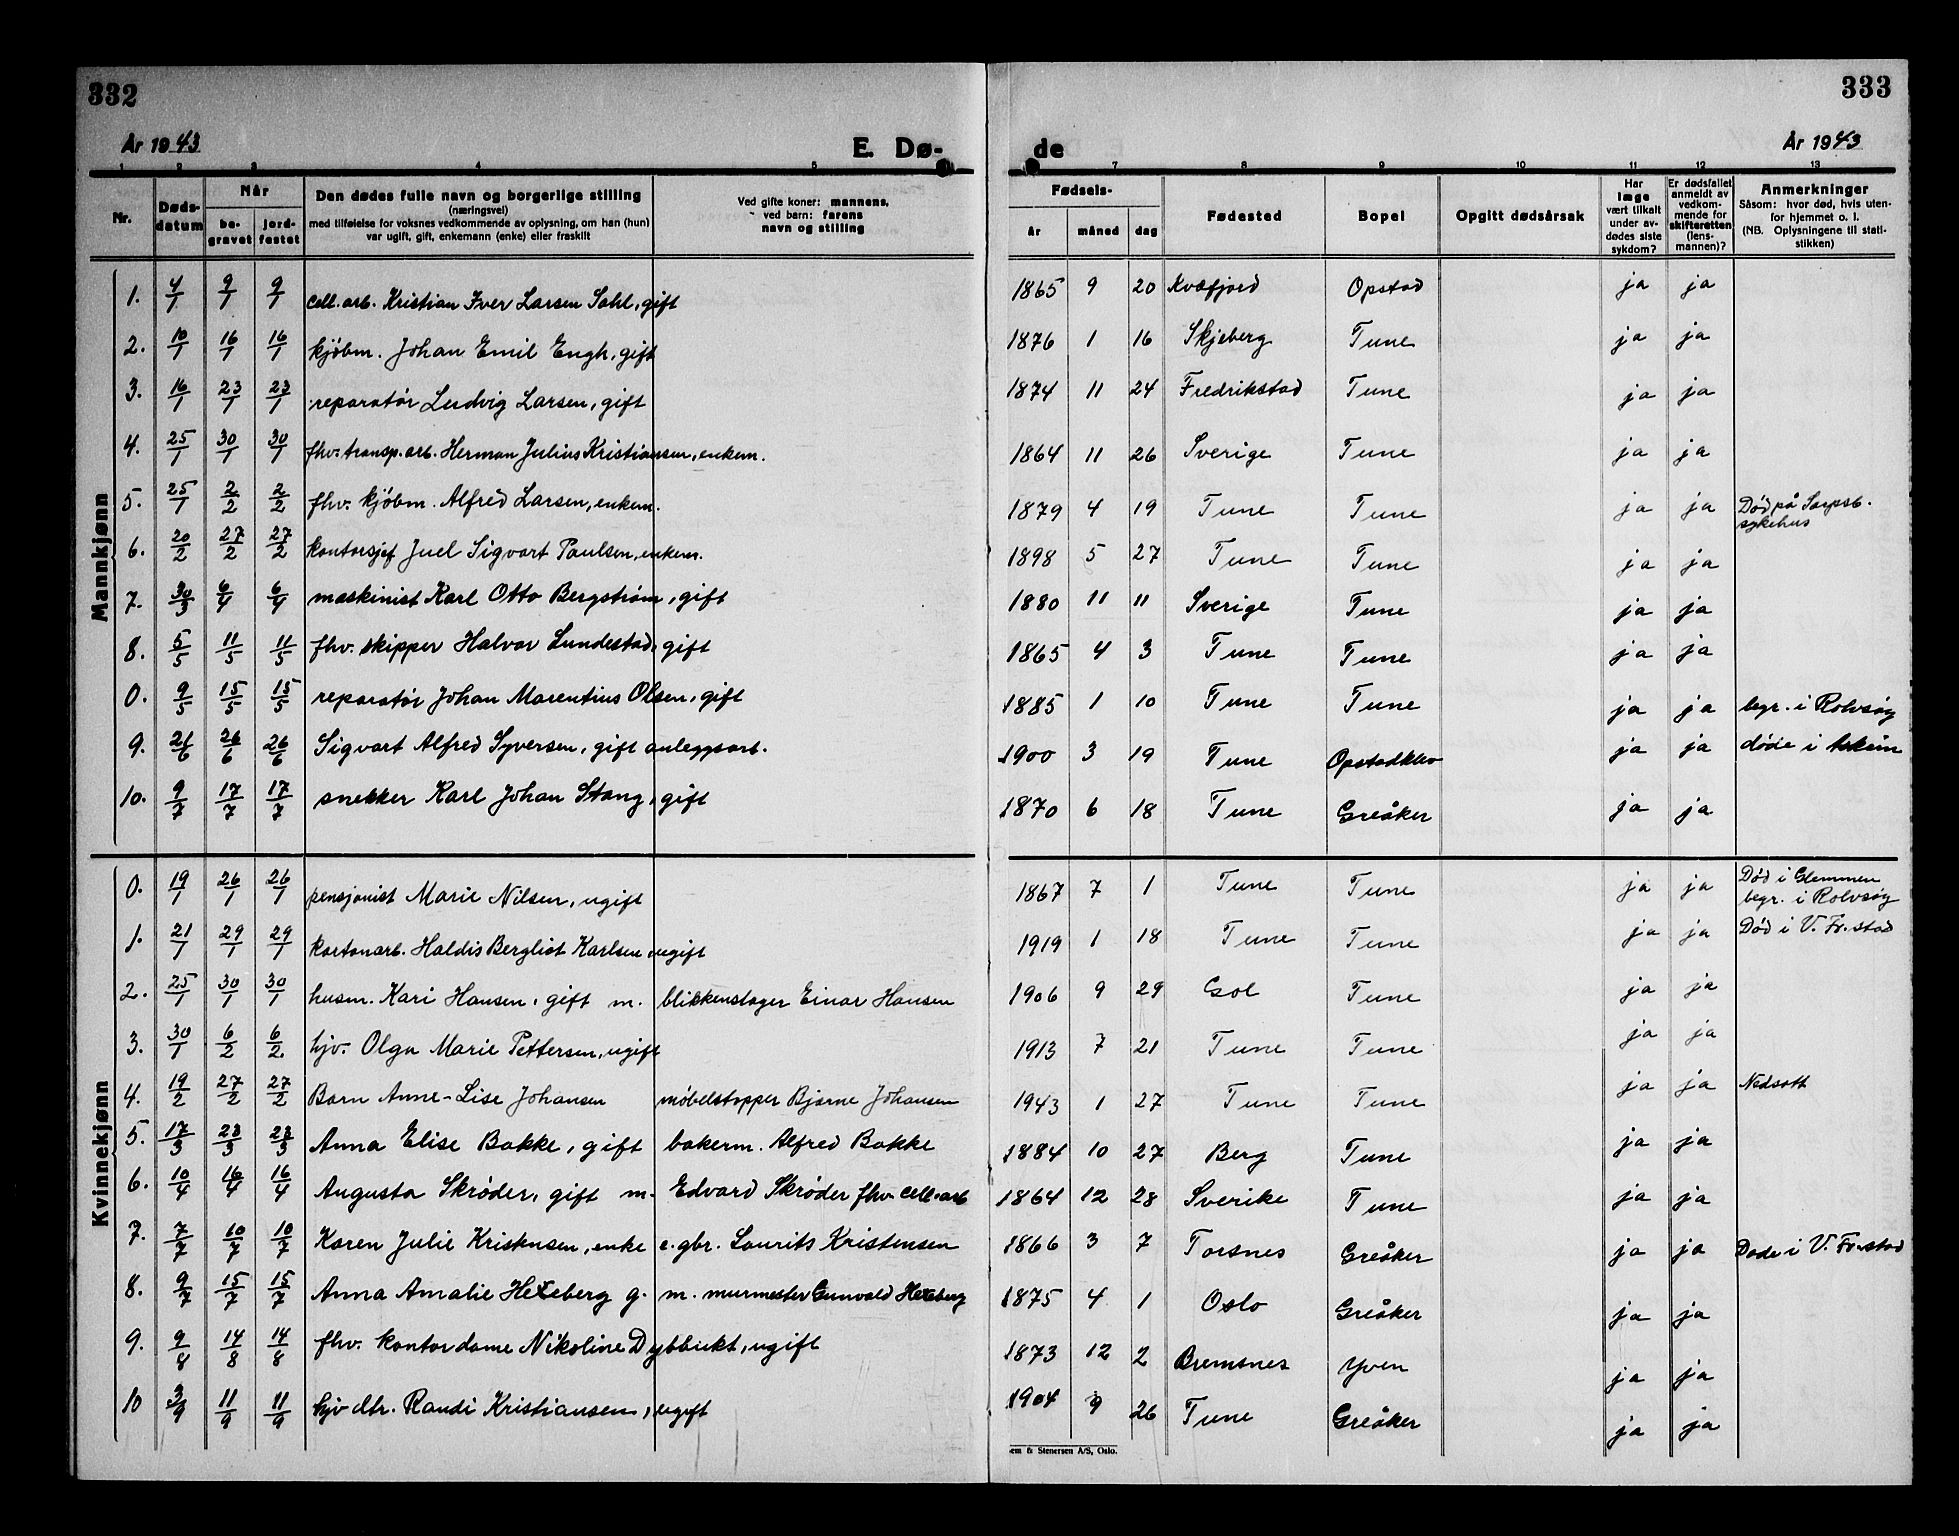 332
333
År 1943
E. Dø-
de
År 1943
1 2 3 4 5 7 8 9 10 11 12 13
Nr.
Døds-datum
Når
be-gravet
jord-festet
Den dødes fulle navn og borgerlige stilling
(næringsvei)
med tilføielse for voksnes vedkommende av oplysning, om han (hun)
var ugift, gift, enkemann (enke) eller fraskilt
Ved gifte koner: mannens,
ved barn: farens
navn og stilling
Fødsels-
år måned dag
Fødested
Bopel
Opgitt dødsårsak
Har læge vært tilkalt under av-dødes siste sykdom?
Er dødsfallet anmeldt av vedkom-mende for skifteretten (lens-mannen)?
Anmerkninger
Såsom: hvor død, hvis uten-
for hjemmet o. l.
(NB. Oplysningene til stati-
stikken)
Mannkjønn
1. 4/1 9/1 9/1 cell. arb. Kristian Iver Larsen Sahl, gift 1865 9 20 Kvæfjord Opstad ja ja
2. 10/1 16/1 16/1 kjøbm. Johan Emil Engh, gift 1876 1 16 Skjeberg Tune ja ja
3. 16/1 23/1 23/1 reparatør Ludvig Larsen, gift 1874 11 24 Fredrikstad Tune ja ja
4. 25/1 30/1 30/1 fhv. transp. arb. Herman Julius Kristiansen, enkem. 1864 11 26 Sverige Tune ja ja
5. 25/1 2/2 2/2 fhv. kjøbm. Alfred Larsen, enkem. 1879 4 19 Tune Tune ja ja Død på Sarpsb. sykehus
6. 20/2 27/2 27/2 kontorsjef Juel Sigvart Paulsen, enkem. 1898 5 27 Tune Tune ja ja
7. 30/3 6/4 6/4 maskinist Karl Otto Bergstrøm, gift 1880 11 11 Sverige Tune ja ja
8. 5/5 11/5 11/5 fhv. skipper Halvor Lundestad, gift 1865 4 3 Tune Tune ja ja
0. 9/5 15/5 15/5 reparatør Johan Marentius Olsen, gift 1885 1 10 Tune Tune ja ja begr. i Rolvsøy
9. 21/6 26/6 26/6 Sigvart Alfred Syversen, gift anleggsarb. 1900 3 19 Tune Opstadklev ja ja døde i Askim
10. 9/7 17/7 17/7 snekker Karl Johan Stang, gift 1870 6 18 Tune Greåker ja ja
Kvinnekjønn
0. 19/1 26/1 26/1 pensjonist Marie Nilsen, ugift 1867 7 1 Tune Tune ja ja Død i Glemmen begr. i Rolvsøy
1. 21/1 29/1 29/1 kartonarb. Haldis Bergliot Karlsen, ugift 1919 1 18 Tune Tune ja ja Død i V. Fr.stad
2. 25/1 30/1 30/1 husm. Kari Hansen, gift m. blikkenslager Einar Hansen 1906 9 29 Gol Tune ja ja
3. 30/1 6/2 6/2 hjv. Olga Marie Pettersen, ugift 1913 7 21 Tune Tune ja ja
4. 19/2 27/2 27/2 Barn Anne-Lise Johansen møbelstopper Bjarne Johansen 1943 1 27 Tune Tune ja ja Nedsatt
5. 17/3 23/3 23/3 Anna Elise Bakke, gift bakerm. Alfred Bakke 1884 10 27 Berg Tune ja ja
6. 10/4 16/4 16/4 Augusta Skrøder, gift m. Edvard Skrøder fhv. cell. arb 1864 12 28 Sverike Tune ja ja
7. 7/7 10/7 10/7 Karen Julie Kristensen, enke e. gbr. Laurits Kristensen 1866 3 7 Torsnes Greåker ja ja Døde i V. Fr.stad
8. 9/7 15/7 15/7 Anna Amalie Hexeberg g. m. murmester Gunvald Hexeberg 1875 4 1 Oslo Greåker ja ja
9. 9/8 14/8 14/8 fhv. kontordame Nikoline Dybbukt, ugift 1873 12 2 Bremsnes Yven ja ja
10 3/9 11/9 11/9 hjv dtr. Randi Kristiansen, ugift 1904 9 26 Tune Greåker ja ja
em & Stenersen A/S, Oslo.